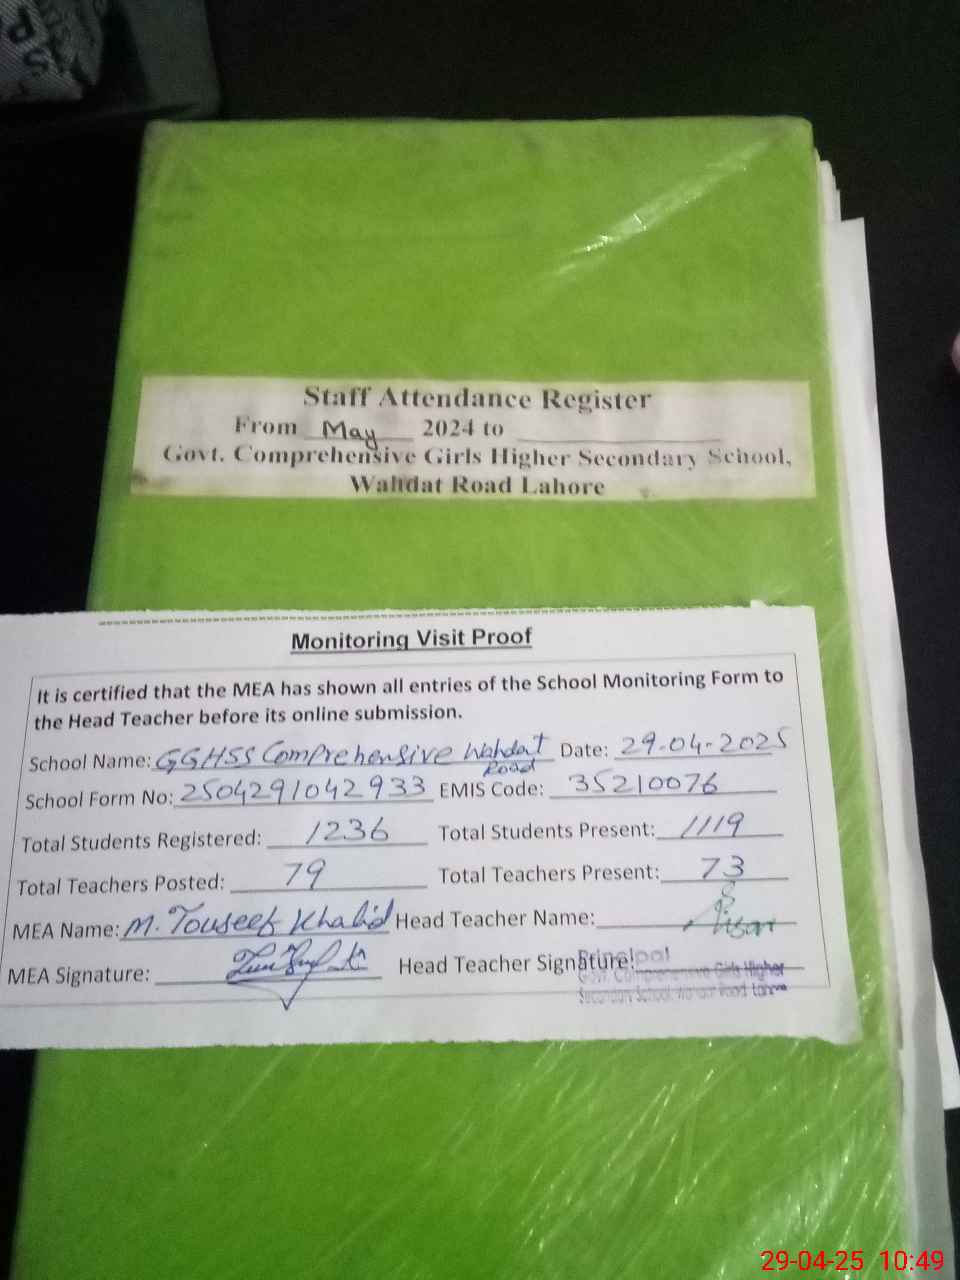 Staff Attendance Register
From May 2024 to
Govt. Comprehensive Girls Higher Secondary School,
Wahdat Road Lahore
Monitoring Visit Proof
It is certified that the MEA has shown all entries of the School Monitoring Form to
the Head Teacher before its online submission.
School Name: GGHSS Comprehensive Wahdat Road Date: 29-04-2025
School Form No: 2504291042933 EMIS Code: 35210076
Total Students Registered: 1236 Total Students Present: 1119
Total Teachers Posted: 79 Total Teachers Present: 73
MEA Name: M. Touseef Khalid Head Teacher Name:
MEA Signature: Head Teacher Signature:
Principal
Govt. Comprehensive Girls Higher
Secondary School, Wahdat Road, Lahore
29-04-25 10:49